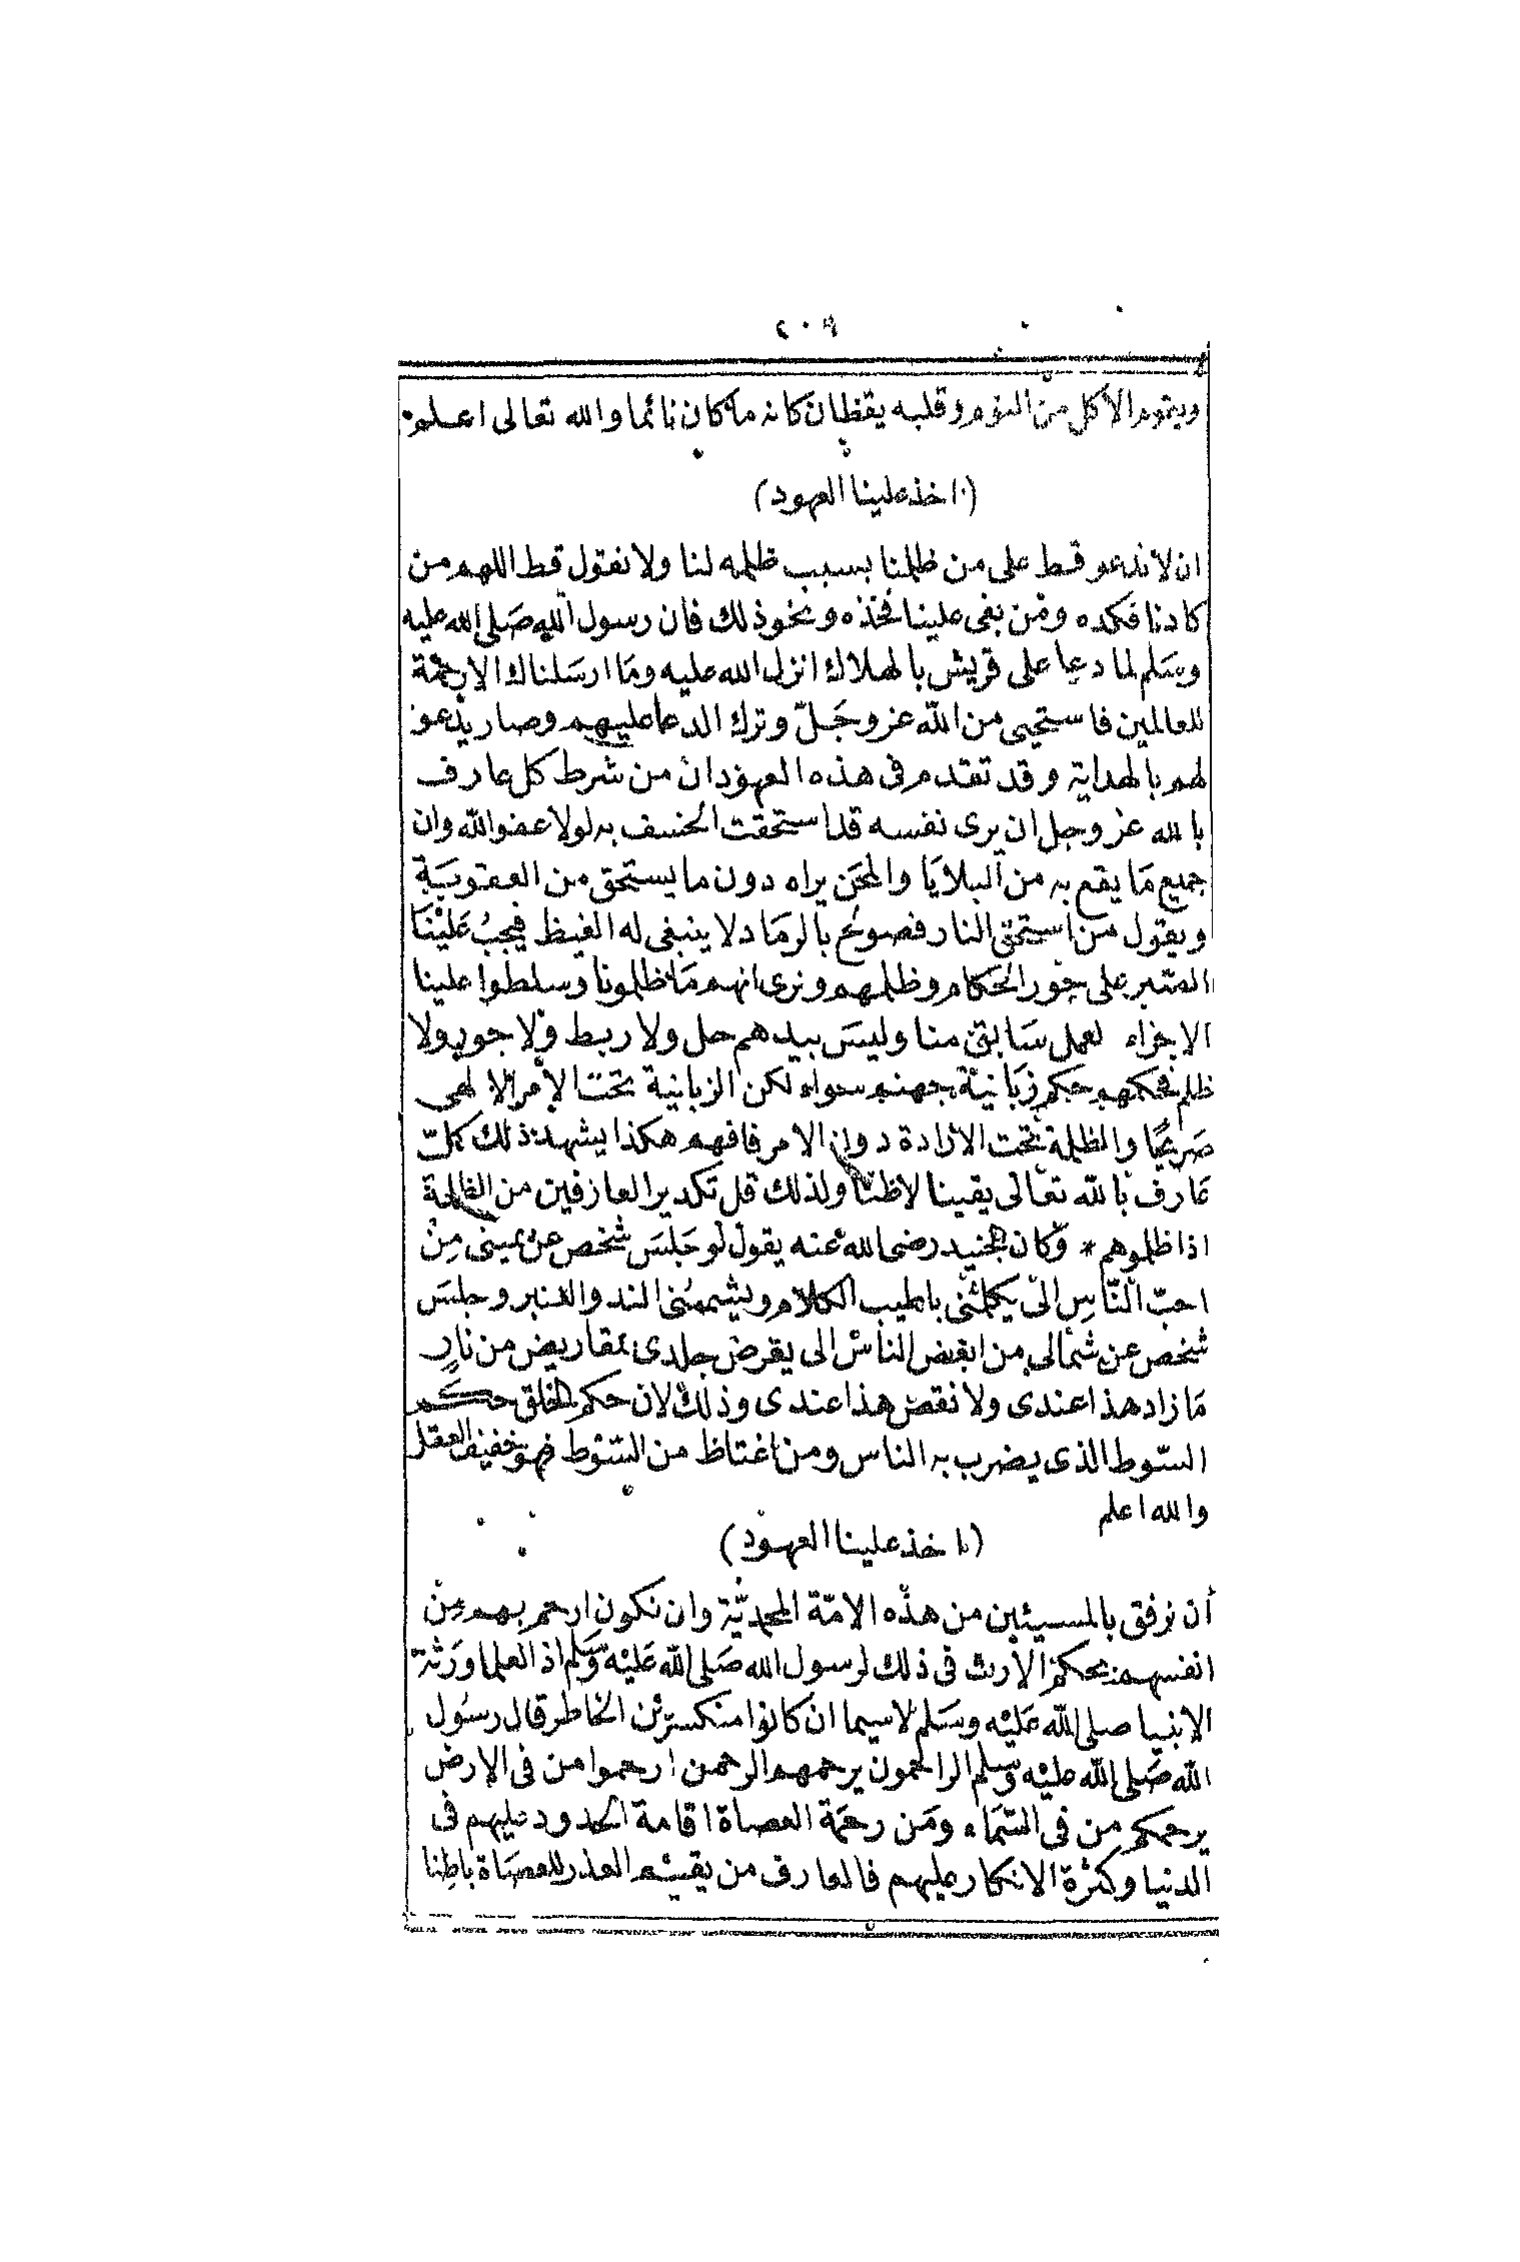 ٢٠٩
ويقوم الاكل من النوم وقلبه يقظان كانه ماكان نائما والله تعالى اعلم
(اخذ علينا العهود)
ان لا ندعو قط على من ظلمنا بسبب ظلمه لنا ولا نقول قط اللهم من
كادنا فكده ومن بغى علينا فخذه ونحو ذلك فان رسول الله صلى الله عليه
وسلم لما دعا على قريش بالهلاك انزل الله عليه وما ارسلناك الا رحمة
للعالمين فاستحيى من الله عز وجل وترك الدعا عليهم وصار يدعو
لهم بالهداية وقد تقدم في هذه العهود ان من شرط كل عارف
بالله عز وجل ان يرى نفسه قد استحقت الخسف به لولا عفو الله وان
جميع ما يقع به من البلايا والمحن يراه دون ما يستحق من العقوبة
ويقول من استحق النار فصولح بالرماد لا ينبغى له الغيظ فيجب علينا
الصبر على جور الحكام وظلمهم ونرى انهم ما ظلمونا وسلطوا علينا
الا جزاء لعمل سابق منا وليس بيدهم حل ولا ربط ولا جور ولا
ظلم فحكمهم حكم زبانية جهنم سواء لكن الزبانية تحت الامر الالهى
صريحا والظلمة تحت الارادة دون الامر فافهم هكذا يشهد ذلك كل
عارف بالله تعالى يقينا لا ظنا ولذلك قل تكدير العارفين من الظلمة
اذا ظلموهم * وكان الجنيد رضى الله عنه يقول لو جلس شخص عن يمينى من
احب الناس الىّ يكلمنى باطيب الكلام ويشممنى الند والعنبر وجلس
شخص عن شمالى من ابغض الناس الى يقرض جلدى بمقاريض من نار
ما زاد هذا عندى ولا نقص هذا عندى وذلك لان حكم الخلق حكم
السوط الذى يضرب به الناس ومن اغتاظ من السوط فهو خفيف العقل
والله اعلم
(اخذ علينا العهود)
أن نرفق بالمسيئين من هذه الامة المحمدية وان نكون ارحم بهم من
انفسهم بحكم الأرث فى ذلك لرسول الله صلى الله عليه وسلم اذ العلما ورثة
الانبيا صلى الله عليه وسلم لاسيما ان كانوا منكسرين الخاطر قال رسول
الله صلى الله عليه وسلم الراحمون يرحمهم الرحمن ارحموا من فى الارض
يرحمكم من فى السماء ومن رحمة العصاة اقامة الحدود عليهم فى
الدنيا وكثرة الانكار عليهم فالعارف من يقيم العذر للعصاة باطنا